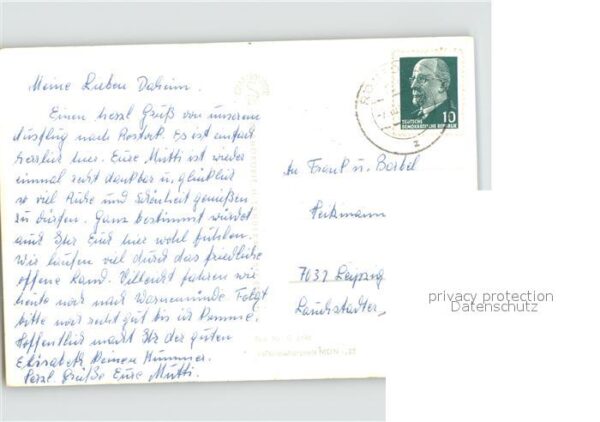 Meine Lieben Daheim.
Einen herzl. Gruß von unserem
Ausflug nach Rostock. Es ist einfach
herrlich hier. Eure Mutti ist wieder
einmal recht dankbar u. glücklich
so viel Ruhe und Schönheit genießen
zu dürfen. Ganz bestimmt würdet
auch Ihr Euch hier wohl fühlen.
Wir laufen viel durch das friedliche
offene Land. Villeicht fahren wir
heute noch nach Warnemünde. Folgt
bitte nur recht gut bis ich komme.
Hoffentlich macht Ihr der guten
Elisabeth keinen Kummer.
Herzl. Grüße Eure Mutti.
10
DEUTSCHE
DEMOKRATISCHE REPUBLIK
An Frank u. Bärbel
7031 Leipzig
Lauchstädter
privacy protection
Datenschutz